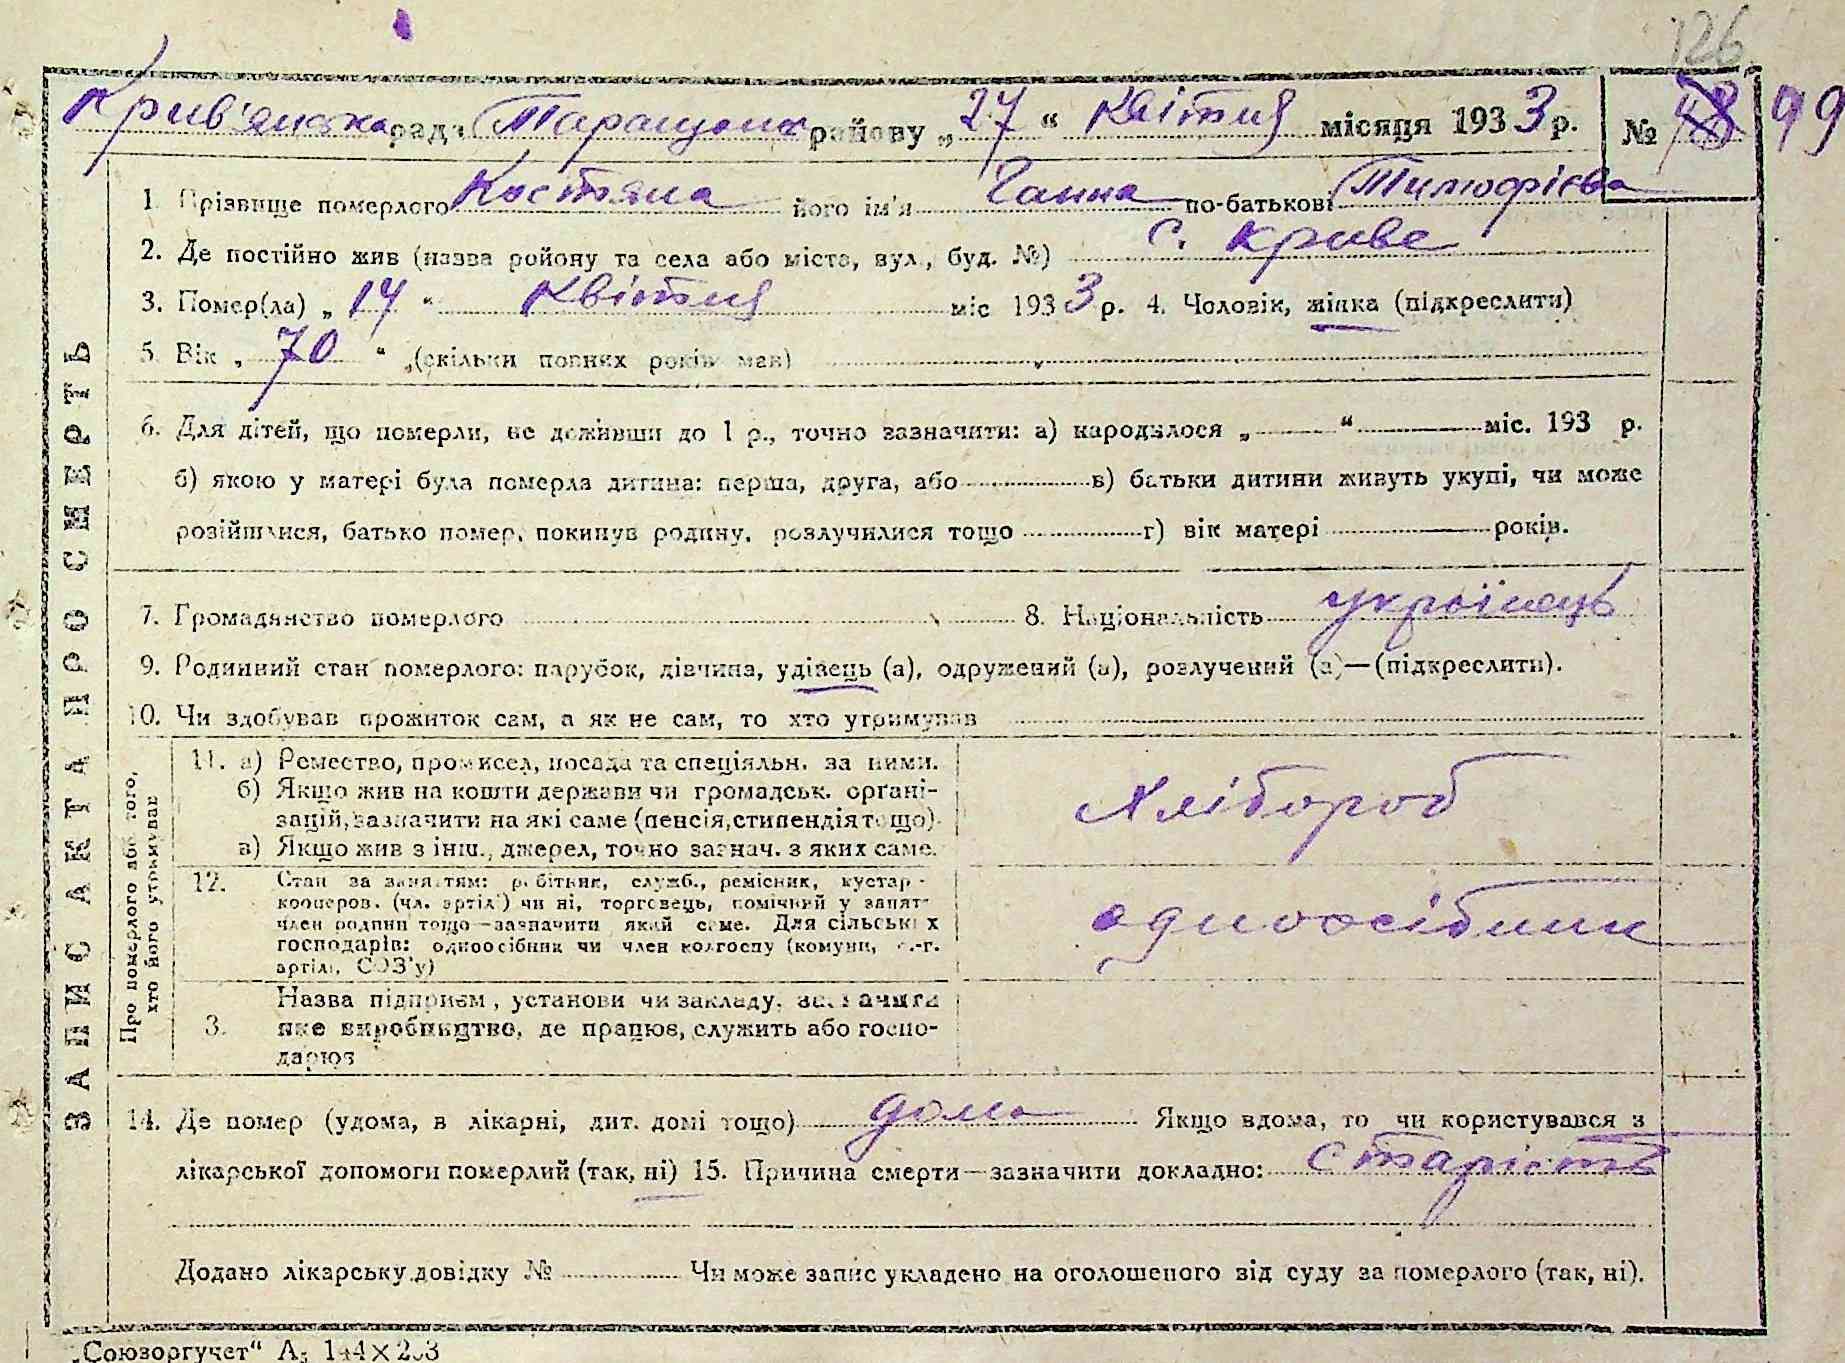 126
Крив'янська рада Таращанск району „27“ Квітня місяця 1933 р. № 48 99
1. Прізвище померлого Костяна його ім'я Ганна по-батькові Тимофієва
2. Де постійно жив (назва району та села або міста, вул., буд. №) с. Криве
3. Помер(ла) „14“ Квітня міс 1933 р. 4. Чоловік, жінка (підкреслити)
5. Вік „70“ „(скільки повних років мав)
6. Для дітей, що померли, не доживши до 1 р., точно зазначити: а) народилося „ “ міс. 193 р.
б) якою у матері була померла дитина: перша, друга, або в) батьки дитини живуть укупі, чи може
розійшлися, батько помер, покинув родину, розлучилися тощо г) вік матері років.
7. Громадянство померлого 8. Національність украінець
9. Родинний стан померлого: парубок, дівчина, удівець (а), одружений (а), розлучений (а)—(підкреслити).
10. Чи здобував прожиток сам, а як не сам, то хто утримував
ЗАПИС АКТА ПРО СМЕРТЬ
Про померлого або того, хто його утримував
11. а) Ремество, промисел, посада та спеціяльн. за ними.
б) Якщо жив на кошти держави чи громадськ. органі-
зацій, зазначити на які саме (пенсія, стипендія тощо).
в) Якщо жив з інш., джерел, точно зазнач. з яких саме.
Хлібороб
12. Стан за заняттям: робітник, служб., ремісник, кустар-
кооперов. (чл. артілі) чи ні, торговець, помічний у занят-
член родини тощо—зазначити який саме. Для сільських
господарів: одноосібник чи член колгоспу (комуни, с.-г.
артілі, СОЗ'у)
одноосібник
3. Назва підприєм, установи чи закладу, зазначити
яке виробництво, де працює, служить або госпо-
дарює
14. Де помер (удома, в лікарні, дит. домі тощо) дома Якщо вдома, то чи користувався з
лікарської допомоги померлий (так, ні) 15. Причина смерти—зазначити докладно: старість
Додано лікарську довідку № Чи може запис укладено на оголошеного від суду за померлого (так, ні).
„Союзоргучет“ А₅ 144×203